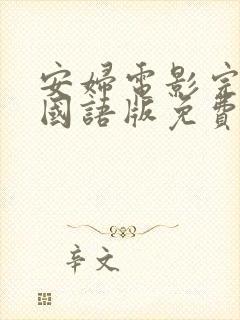 安婦電影完
國語版免費
辛文